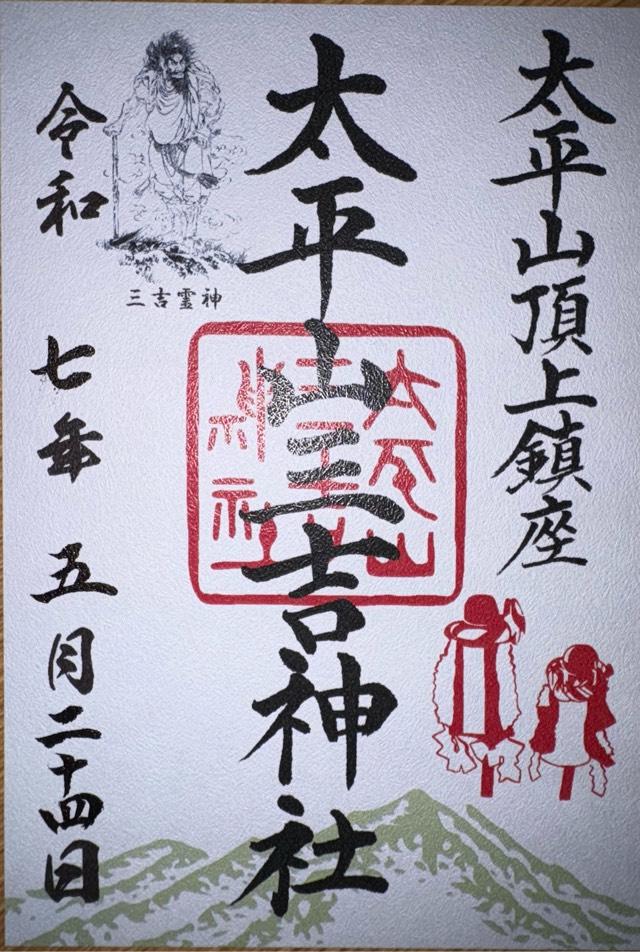 太平山頂上鎮座
太平山三吉神社
三吉霊神
令和 七年 五月二十四日